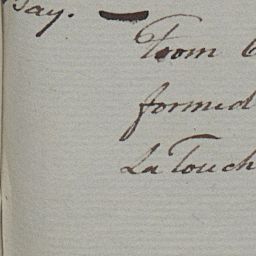 Say. —
From
formed
La Touch